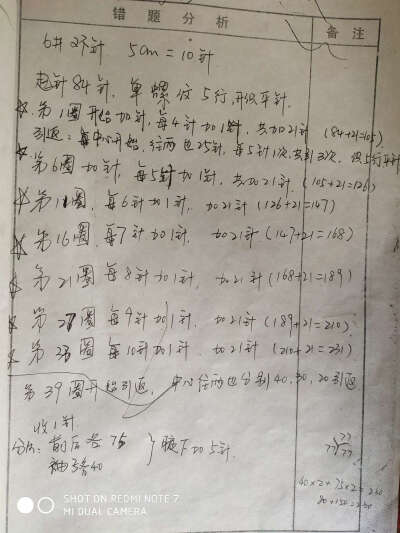 错题分析
备注
6# 2不针 5cm=10针
起针84针, 单螺纹5行,开织平针.
第1圈开始加针,每4针加1针,共加21针 (84+21=105)
引返:中心开始,往两边25针,每5针1次,共引3次, 织5行平针
第6圈加针,每5针加1针,共加21针 (105+21=126)
第11圈,每6针加1针, 加21针 (126+21=147)
第16圈,每7针加1针, 加21针 (147+21=168)
第21圈 每8针加1针, 加21针 (168+21=189)
第27圈 每9针加1针, 加21针 (189+21=210)
第 圈 每10针加1针, 加21针 (210+21=231)
第39圈开始引返, 中心往两边分别40,30,20引返
收1针
分片: 前后各75
袖各40
腋下加5针.
77
77 77
40×2+75×2=230
80+150=230
SHOT ON REDMI NOTE 7
MI DUAL CAMERA